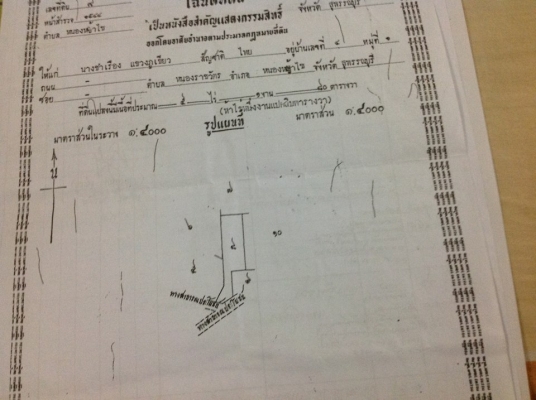 เลขที่ดิน ๙
หน้าสำรวจ
ตำบล หนองหญ้าไซ
จังหวัด สุพรรณบุรี
เป็นหนังสือสำคัญแสดงกรรมสิทธิ์
ออกโดยอาศัยอำนาจตามประมวลกฎหมายที่ดิน
ให้แก่ สัญชาติ ไทย อยู่บ้านเลขที่ หมู่ที่
ถนน ตำบล หนองราชวัตร อำเภอ หนองหญ้าไซ จังหวัด สุพรรณบุรี
ซอย
ที่ดินแปลงนี้มีเนื้อที่ประมาณ ๕ ไร่ งาน ๘๐ ตารางวา
(ห้าไร่หนึ่งงานแปดสิบตารางวา)
มาตราส่วนในระวาง ๑:๔๐๐๐
รูปแผนที่
มาตราส่วน ๑:๔๐๐๐
น
๗
๖
๙
๑๐
๕
๘
ทางสาธารณประโยชน์
ทางสาธารณประโยชน์